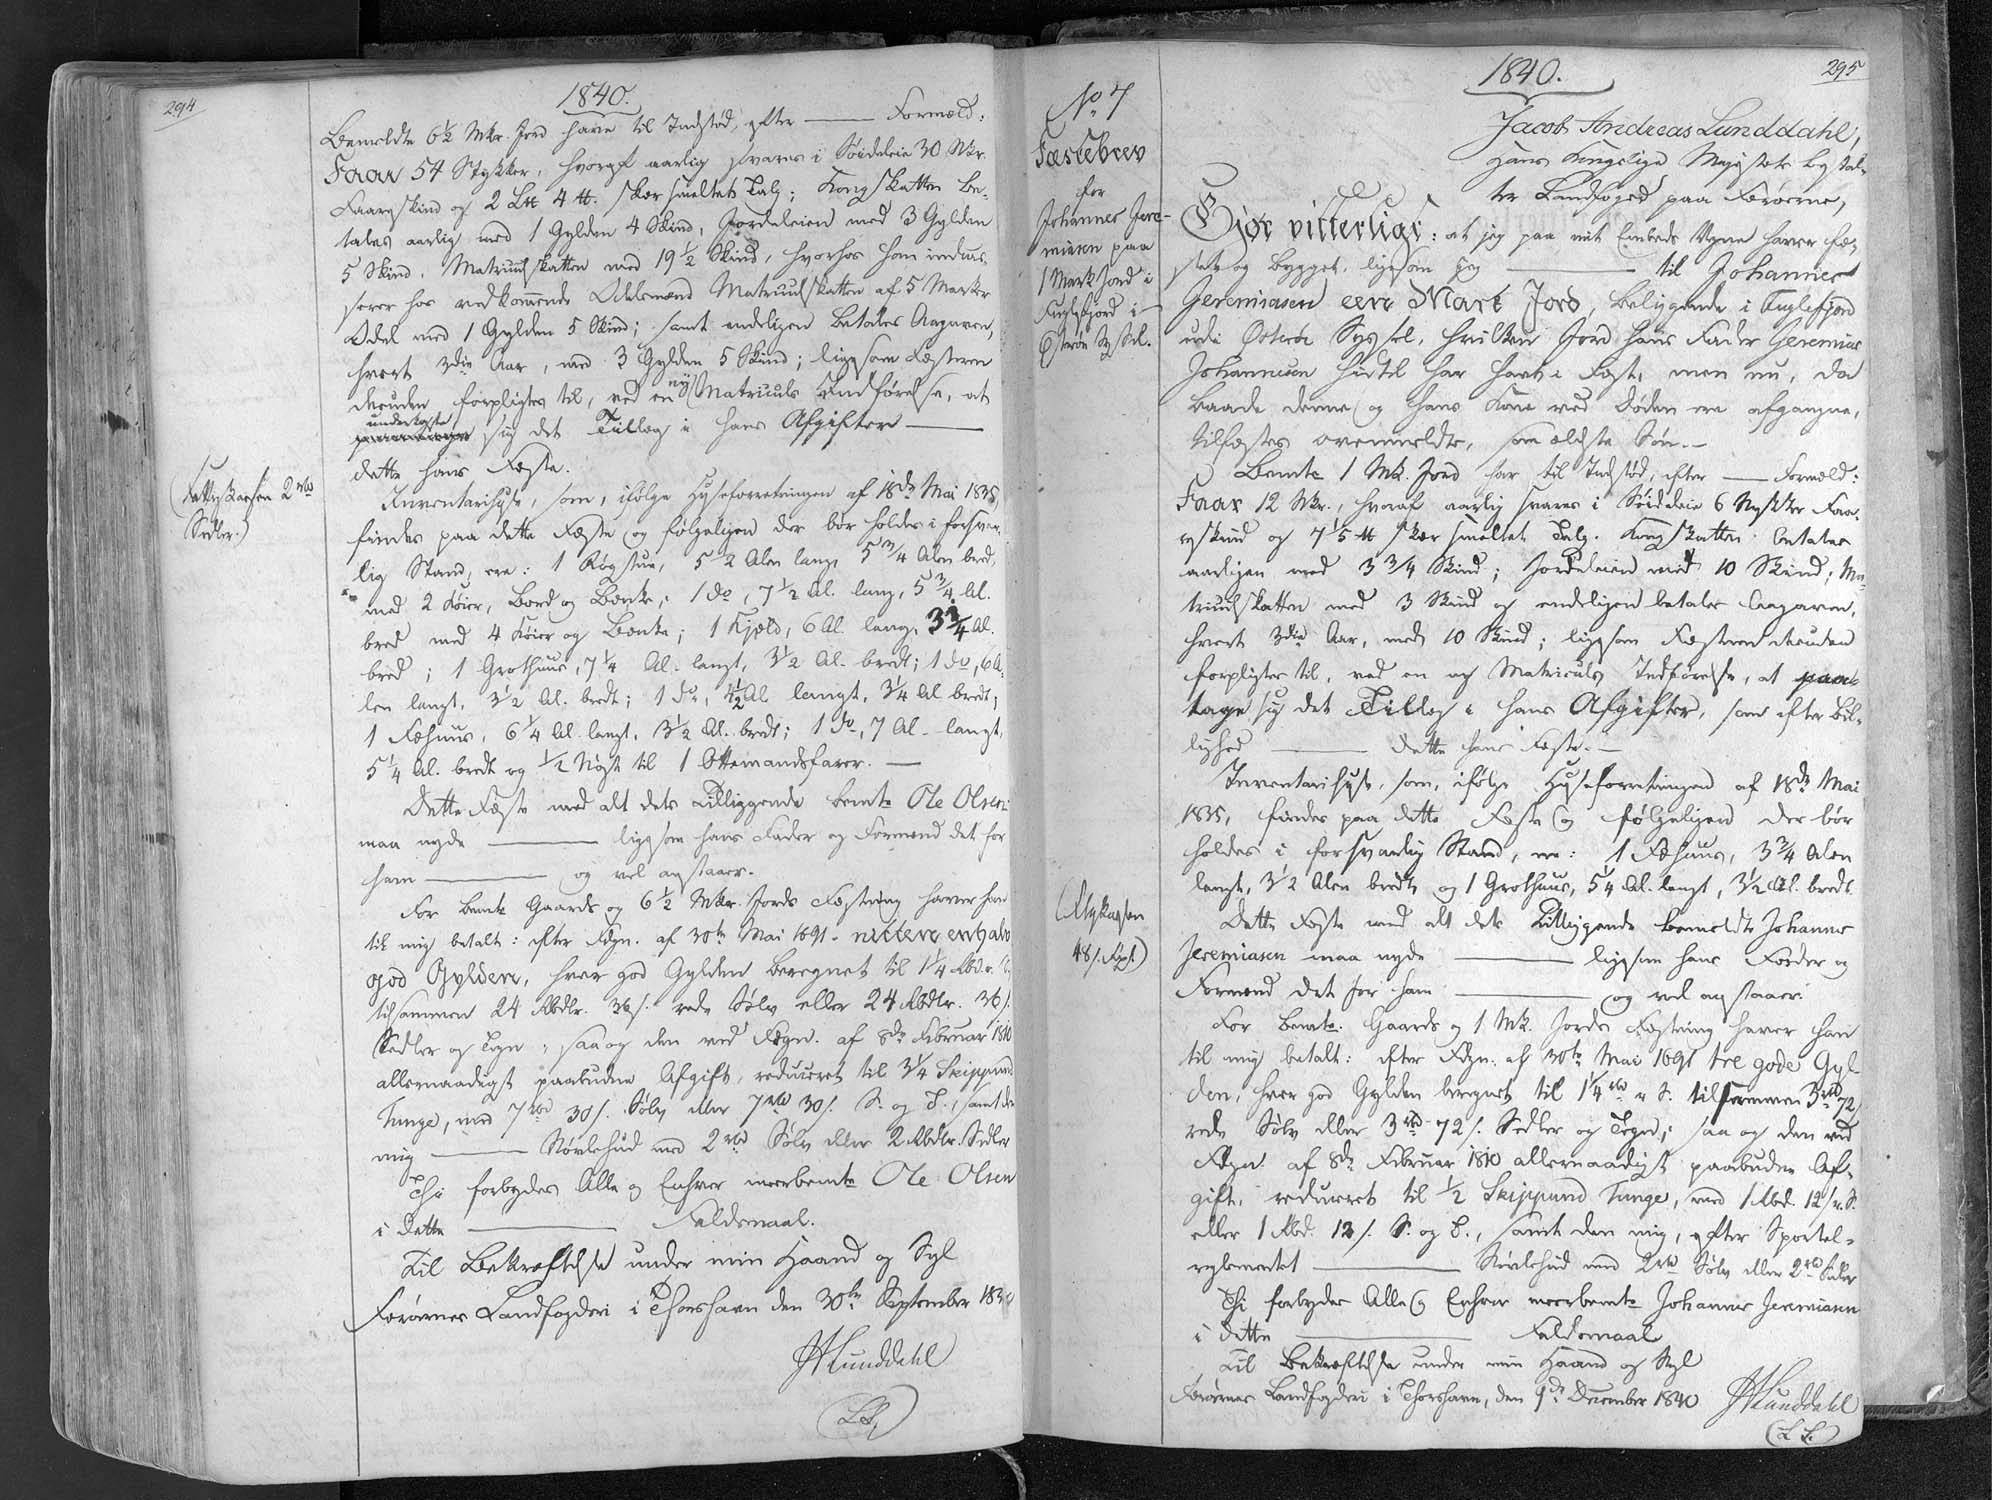 294
1840.
Bemeldte 6½ Mkr. Jord have til Indstød, efter — Formæld:
Faar 54 Stykker, hvoraf aarlig svares i Søideleie 30 Stkr.
Faareskind og 2 L℔ 4 ℔. skær smeltet Talg; Kongsskatten be-
tales aarlig med 1 Gylden 4 Skind, Jordeleien med 3 Gylden
5 Skind, Matriculskatten med 19½ Skind, hvorhos han indcas-
serer hos vedkommende Odelsmænd Matriculskatten af 5 Marker
Odel med 1 Gylden 5 Skind; samt endeligen betales Aagaven,
hvert 3die Aar, med 3 Gylden 5 Skind; ligesom Fæsteren
desuden forpligtes til, ved en ny Matriculs Indførelse, at
underkaste
sig det Tillæg i hans Afgifter —
dette hans Fæste.
Inventarihuse, som, ifølge Huseforretningen af 18de Mai 1835,
findes paa dette Fæste og følgeligen der bør holdes i forsvar-
lig Stand, ere: 1 Røgstue, 5½ Alen lang, 5¾ Alen bred,
med 2 Køier, Bord og Bænke; 1 do, 7½ Al. lang, 5¾ Al.
bred med 4 Køier og Bænke; 1 Hjeld, 6 Al. lang, 3¾ Al.
bred; 1 Grothuus, 7¼ Al. langt, 3½ Al. bredt; 1 do, 6 A-
len langt, 3½ Al. bredt; 1 do, 4½ Al langt, 3¼ Al bredt;
1 Fæhuus, 6¼ Al. langt, 3½ Al. bredt; 1 do, 7 Al. langt,
5¼ Al. bredt og ½ Nøst til 1 Ottemandsfarer. —
Dette Fæste med alt dets Tilliggende bemte Ole Olsen
maa nyde — ligesom hans Fader og Formænd det for
ham — og vel anstaaer.
For bemte Gaards og 6½ Mkr. Jords Fæstning haver han
til mig betalt: efter Fdgn. af 30te Mai 1691 – nitten en halv
god Gylden, hver god Gylden beregnet til 1¼ Rbd.
tilsammen 24 Rbdlr. 36 s. rede Sølv eller 24 Rbdlr. 36 s.
Sedler og Tegn, saa og den ved Fdgn. af 8de Februar 1810
allernaadigst paabudne Afgift, reduceret til 3¼ Skippund
Tunge, med 7 rbd 30 s. Sølv eller 7 rbd 30 s. S. og T., samt den
mig — Støvlehud med 2 rbd Sølv eller 2 Rbdlr. Sedler
Thi forbydes Alle og Enhver meerbemte Ole Olsen
i dette — Faldsmaal.
Til Bekræftelse under min Haand og Segl
Færøernes Landfogderi i Thorshavn den 30te September 18
JALunddahl
(L.S.)
2 rbd
Sedler.)
295
1840.
No 7
Fæstebrev
for
Johannes Jere-
miasen paa
1 Mark Jord i
Fuglefjord i
Østerøe Syssel.
Jacob Andreas Lunddahl,
Hans Kongelige Majestæts bestal-
ter Landfoged paa Færøerne,
Gjør vitterligt: at jeg paa mit Embeds Vegne haver fæ-
stet og bygget, ligesom jeg — til Johannes
Jeremiasen een Mark Jord, beliggende i Fuglefjord
udi Østerøe Syssel, hvilken Jord hans Fader Jeremias
Johannesen hidtil har havt i Fæste, men nu, da
baade denne og hans Kone ved Døden ere afgangne,
tilfæstes ovenmeldte, som ældste Søn. —
Bemte 1 Mk. Jord har til Indstød, efter — Formæld:
Faar 12 Stkr., hvoraf aarlig svares i Søideleie 6 Stykker Faa-
reskind og 7⅕ ℔ skær smeltet Talg. Kongsskatten betales
aarligen med 3¾ Skind; Jordeleien med 10 Skind; Ma-
triculskatten med 3 Skind og endeligen betales Aagaven,
hvert 3die Aar, med 10 Skind; ligesom Fæsteren desuden
forpligtes til, ved en ny Matriculs Indførelse, at paa-
tage sig det Tillæg i hans Afgifter, som efter Bil-
lighed — dette hans Fæste. —
Inventarihuse, som, ifølge Huseforretningen af 18de Mai
1835, findes paa dette Fæste og følgeligen der bør
holdes i forsvarlig Stand, ere: 1 Fæhuus, 3¾ Alen
langt, 3½ Alen bredt og 1 Grothuus, 5¼ Al. langt, 3½ Al. bredt.
Dette Fæste med alt dets Tilliggende bemeldte Johannes
Jeremiasen maa nyde — ligesom hans Fader og
Formænd det for ham — og vel anstaaer.
For bemte Gaards og 1 Mk. Jords Fæstning haver han
til mig betalt: efter Fdgn. af 30te Mai 1691 tre gode Gyl-
den, hver god Gylden beregnet til 1¼ rbd r. S. tilsammen 3 rbd 72 s.
rede Sølv eller 3 rbd 72 s. Sedler og Tegn; saa og den ved
Fdgn. af 8de Februar 1810 allernaadigst paabudne Af-
gift, reduceret til ½ Skippund Tunge, med 1 Rbd. 12 s. r. S.
eller 1 Rbd. 12 s. S. og T., samt den mig, efter Sportel-
reglementet — Støvlehud med 2 rbd Sølv eller 2 rbd Sedler
Thi forbydes Alle og Enhver meerbemte Johannes Jeremiasen
i dette — Faldsmaal
Til Bekræftelse under min Haand og Segl
Færøernes Landfogderi i Thorshavn, den 9de December 1840
JALunddahl
(L.S.)
48 s.